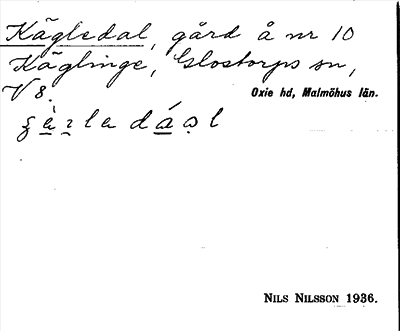 Kägledal, gård å nr 10
Käglinge, Glostorps sn,
V 8.
Oxie hd, Malmöhus län.
NILS NILSSON 1936.